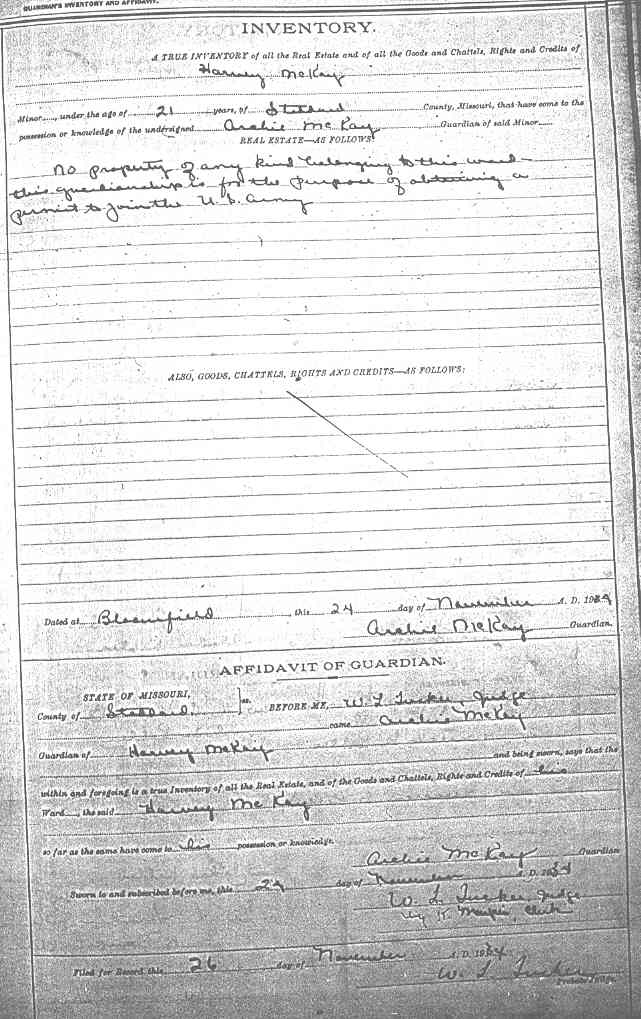 GUARDIAN'S INVENTORY AND AFFIDAVIT.
INVENTORY.
A TRUE INVENTORY of all the Real Estate and of all the Goods and Chattels, Rights and Credits of
Harvey McKay
Minor....., under the age of 21 years, of Stoddard County, Missouri, that have come to the
possession or knowledge of the undersigned Archie McKay Guardian of said Minor.....
REAL ESTATE—AS FOLLOWS:
No property of any kind belonging to this ward-
this guardianship is for the purpose of obtaining a
permit to join the U.S. Army
ALSO, GOODS, CHATTELS, RIGHTS AND CREDITS—AS FOLLOWS:
Dated at Bloomfield, this 24 day of November A. D. 19
Archie McKay Guardian.
AFFIDAVIT OF GUARDIAN.
STATE OF MISSOURI,
County of Stoddard. } ss. BEFORE ME, W. L. Tucker, Judge
came Archie McKay
Guardian of Harvey McKay and being sworn, says that the
within and foregoing is a true Inventory of all the Real Estate, and of the Goods and Chattels, Rights and Credits of his
Ward....., the said Harvey McKay
so far as the same have come to his possession or knowledge.
Archie McKay Guardian
Sworn to and subscribed before me, this 24 day of November A. D. 19
W. L. Tucker, Judge
by K. Clerk
Filed for Record this 26 day of November A. D. 1934
W. L. Tucker
Probate Judge.